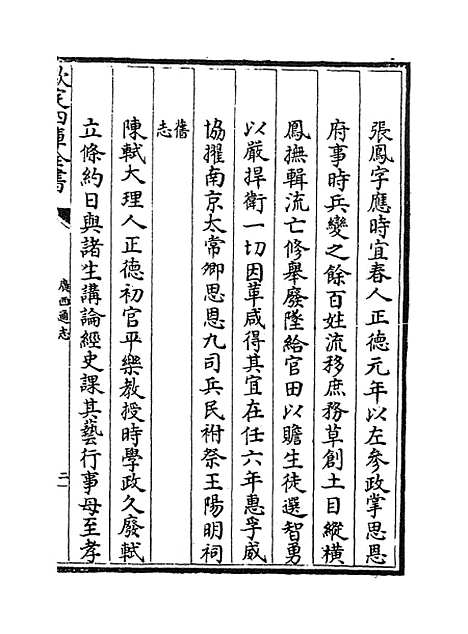 張鳳字應時宜春人正德元年以左參政掌思恩
府事時兵變之餘百姓流移庶務草創土目縱橫
鳳撫輯流亡修舉廢墜給官田以贍生徒選智勇
以嚴捍衛一切因革咸得其宜在任六年惠孚威
協擢南京太常卿思恩九司兵民祔祭王陽明祠
舊志
陳軾大理人正德初官平樂教授時學政久廢軾
立條約日與諸生講論經史課其藝行事母至孝
欽定四庫全書
廣西通志